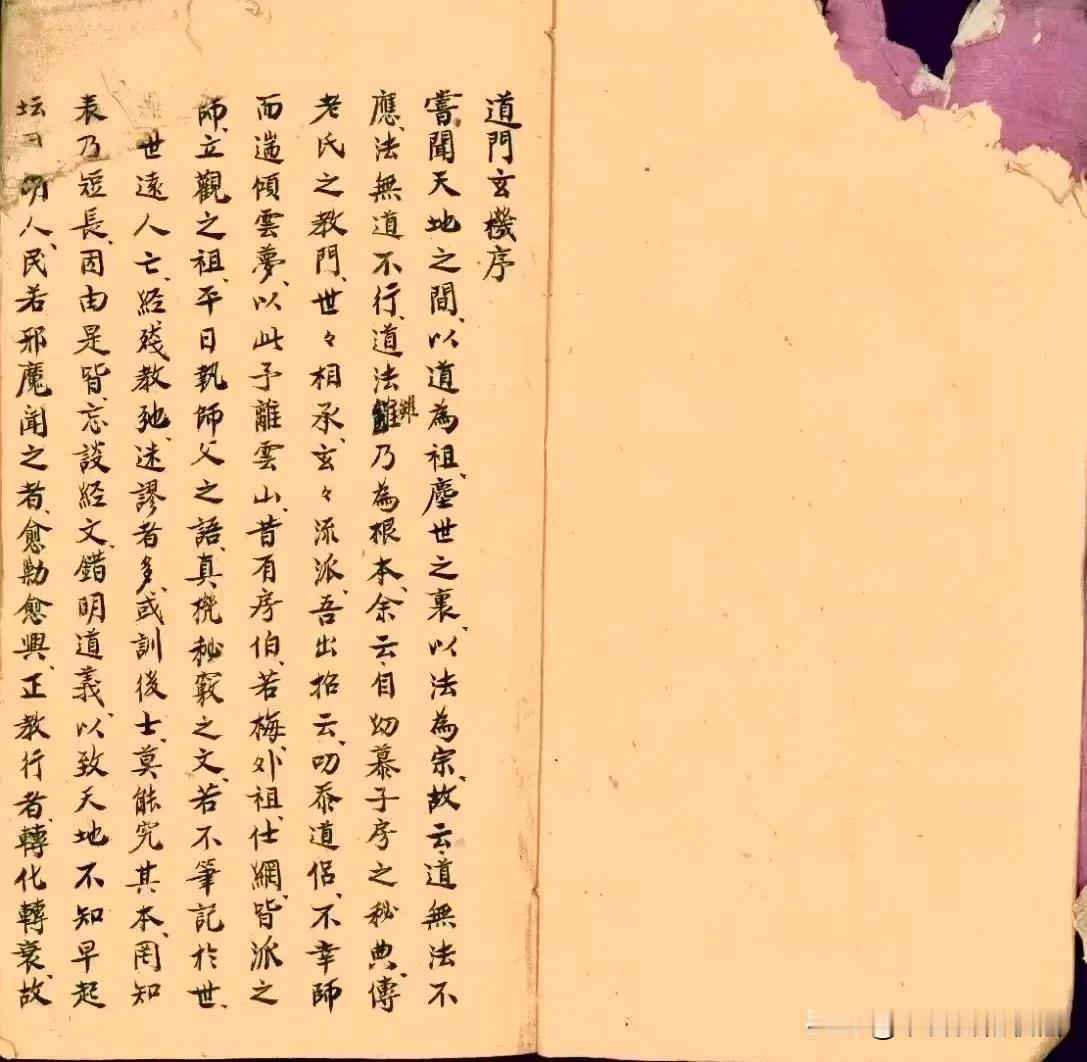 道門玄機序
嘗聞天地之間、以道為祖、塵世之裏、以法為宗、故云、道無法不
應、法無道不行、道法雖乃為根本、余云、自幼慕子房之秘典、傳
老氏之教門、世々相承、玄々流派、吾出招云、叨忝道侶、不幸師
而遄傾雲夢、以此予離雲山、昔有序伯、若梅、外祖、仕網、皆派之
師、立觀之祖、平日執師父之語、真機秘竅之文、若不筆記於世、
世遠人亡、經殘教弛、迷謬者多、或訓後士、莫能究其本、罔知
表乃短長、因由是皆、忘談經文、錯明道義、以致天地不知早起
坛明人、民若邪魔聞之者、愈勦愈興、正教行者、轉化轉衰、故